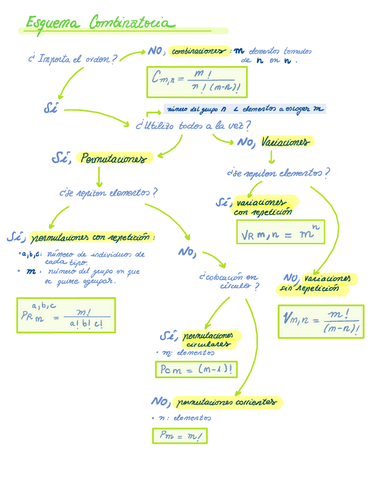 Esquema Combinatoria
¿Importa el orden?
NO, combinaciones: m elementos tomados
de n en n.
C m,n = m! / n! (m-n)!
Sí
número del grupo n < elementos a escoger m
¿Utilizo todos a la vez?
Sí, Permutaciones
NO, Variaciones
¿Se repiten elementos?
¿Se repiten elementos?
Sí, variaciones
con repetición
VR m,n = m^n
Sí, permutaciones con repetición:
• a,b,c: número de individuos de
cada tipo.
• m: número del grupo en que
se quiere agrupar.
PR m a,b,c = m! / a! b! c!
NO,
¿colocación en
círculo?
NO, variaciones
sin repetición
Vm,n = m! / (m-n)!
Sí, permutaciones
circulares
• m: elementos
PC m = (m-1)!
NO, permutaciones corrientes
• n: elementos
Pm = m!